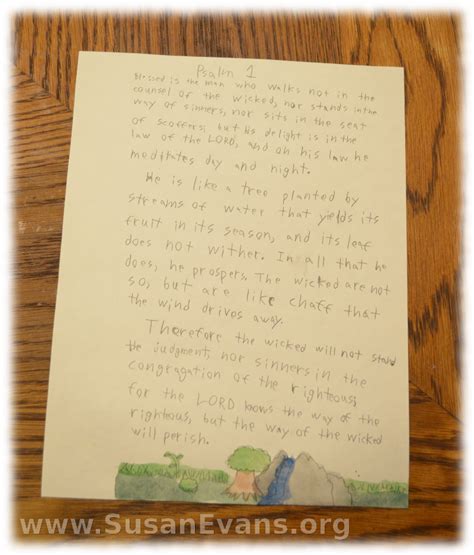 Psalm 1
Blessed is the man who walks not in the
counsel of the wicked, nor stands in the
way of sinners, nor sits in the seat
of scoffers; but his delight is in the
law of the LORD, and on his law he
meditates day and night.
He is like a tree planted by
streams of water that yields its
fruit in its season, and its leaf
does not wither. In all that he
does, he prospers. The wicked are not
so, but are like chaff that
the wind drives away.
Therefore the wicked will not stand
the judgment, nor sinners in the
congragation of the righteous,
for the LORD knows the way of the
righteous, but the way of the wicked
will perish.
www.SusanEvans.org